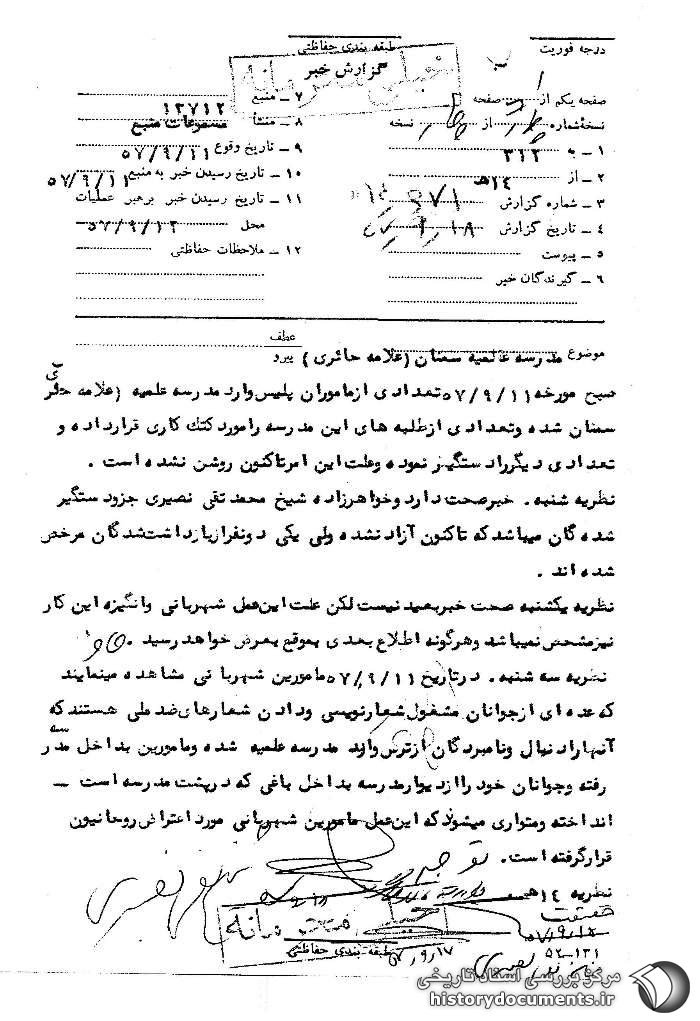 درجه فوریت
طبقه بندی حفاظتی
گزارش خبر
خیلی محرمانه
صفحه یکم از صفحه
نسخه شماره از نسخه
۱ - به ۳۱۲
۲ - از ۱۴ هـ
۳ - شماره گزارش
۴ - تاریخ گزارش
۵ - پیوست
۶ - گیرندگان خبر
۷ - منبع ۱۲۷۱۲
۸ - منشأ مسموعات منبع
۹ - تاریخ وقوع ۵۷/۹/۱۱
۱۰ - تاریخ رسیدن خبر به منبع ۵۷/۹/۱۱
۱۱ - تاریخ رسیدن خبر برهبر عملیات
محل ۵۷/۹/۱۲
۱۲ - ملاحظات حفاظتی
عطف
موضوع مدرسه علمیه سمنان (علامه حائری) پیرو
صبح مورخه ۵۷/۹/۱۱ تعدادی ازماموران پلیس وارد مدرسه علمیه (علامه حائری
سمنان شده وتعدادی ازطلبه های این مدرسه رامورد کتک کاری قرارداده و
تعدادی دیگررادستگیر نموده وعلت این امرتاکنون روشن نشده است .
نظریه شنبه . خبرصحت دارد وخواهرزاده شیخ محمدتقی نصیری جزودستگیر
شده گان میباشدکه تاکنون آزادنشده ولی یکی دونفرازبازداشت‌شدگان مرخص
شده اند .
نظریه یکشنبه صحت خبربعید نیست لکن علت این‌عمل شهربانی وانگیزه این کار
نیزمشخص نمیباشد وهرگونه اطلاع بعدی بموقع بعرض خواهدرسید .
نظریه سه شنبه . درتاریخ ۵۷/۹/۱۱ مامورین شهربانی مشاهده مینمایند
که عده ای ازجوانان مشغول شعارنویسی ودادن شعارهای ضد ملی هستندکه
آنهارادنبال ونامبردگان ازترس وارد مدرسه علمیه شده ومامورین بداخل مدرسه
رفته وجوانان خودراازدیوارمدرسه بداخل باغی که درپشت مدرسه است -
انداخته ومتواری میشوندکه این‌عمل مامورین شهربانی مورد اعتراض روحانیون
قرارگرفته است .
نظریه ۱۴ هـ
حقیقت
خیلی محرمانه
طبقه بندی حفاظتی
۵۷/۹/۱۷
۵۲-۱۳۱
مرکز بررسی اسناد تاریخی
historydocuments.ir